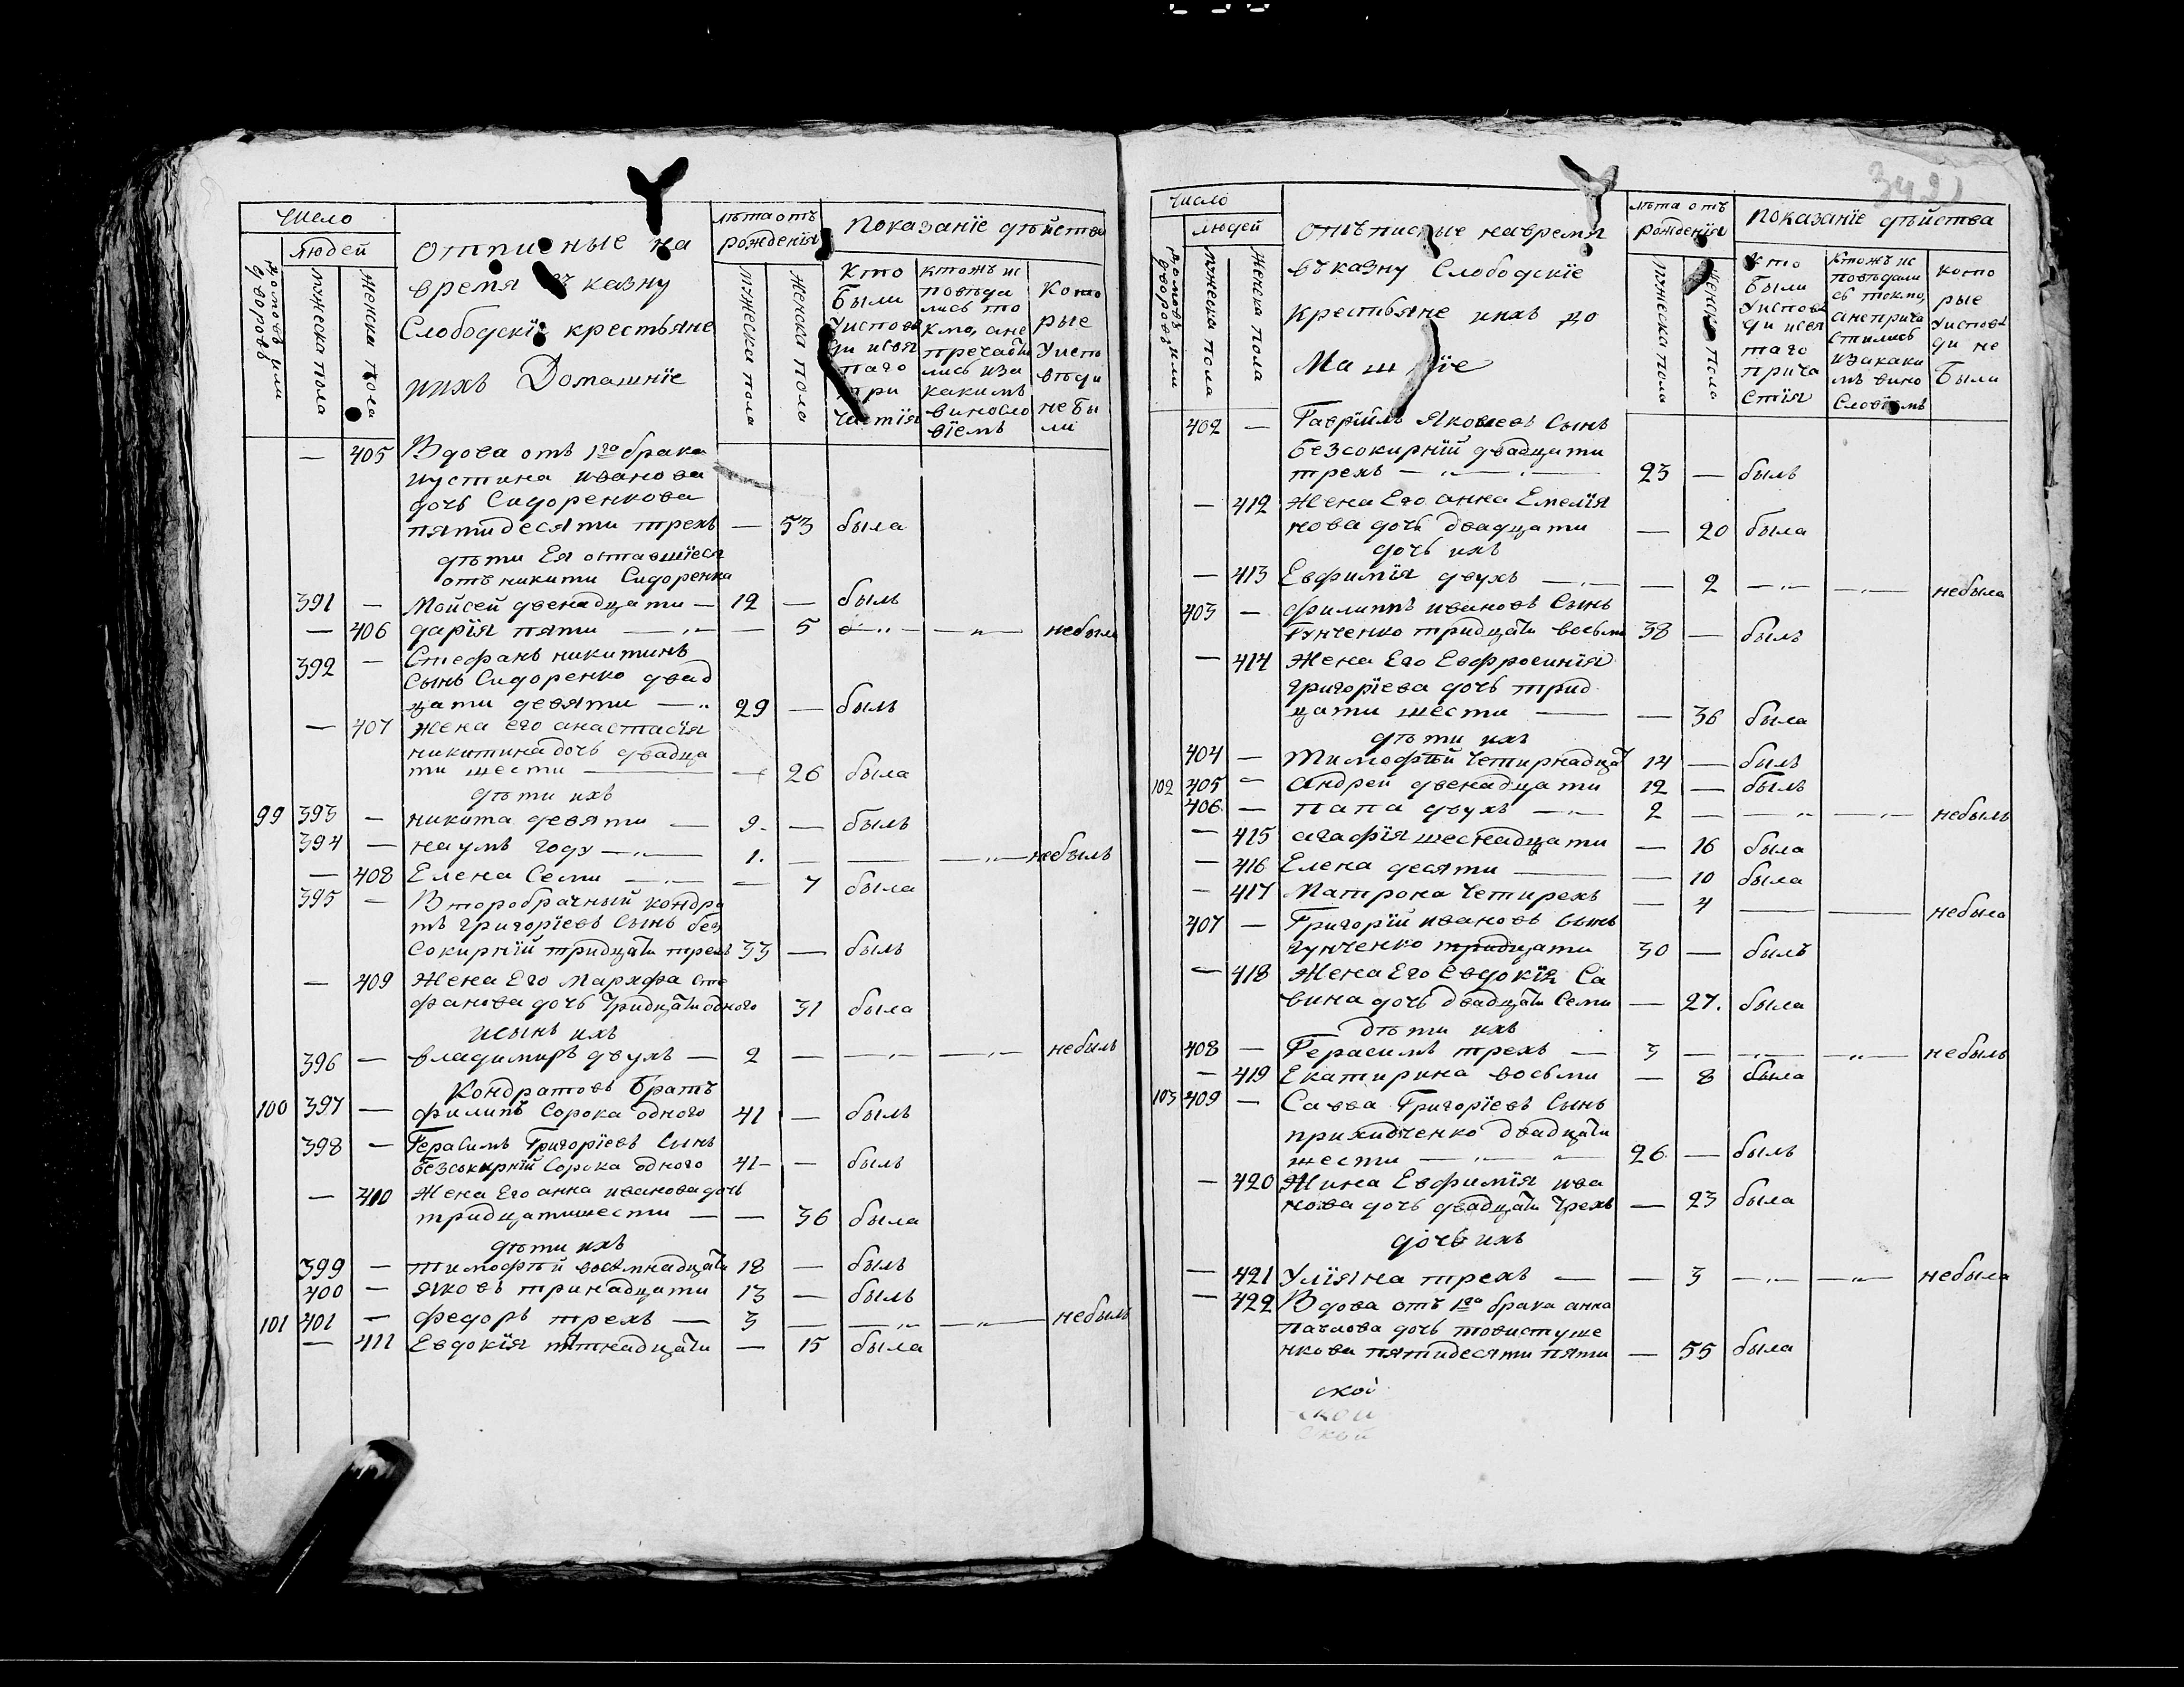 Число
людей
домовъ или дворовъ
мужеска пола
женска пола
отписные на
время въ казну
Слободскіе крестьяне
ихъ Домашніе
лѣта отъ
рожденія
мужеска пола
женска пола
показаніе дѣйства
кто
были
у испове
ди и свя
таго
при
частія
ктожъ ис
повѣда
лись то
кмо, а не
причасти
лись и за
какимъ
виносло
віемъ
кото
рые
у испо
вѣди
не бы
ли
— 405 Вдова отъ 1го брака
иустина иванова
дочь Сидоренкова
пятидесяти трехъ — 53 была
дѣти Ея оставшіеся
отъ никити Сидоренка
391 — Мойсей двенадцати — 12 — былъ
— 406 дарія пяти — — 5 — — небыла
392 — Стефанъ никитинъ
Сынъ Сидоренко двад
цати девяти — 29 — былъ
— 407 жена его анастасія
никитина дочь двадца
ти шести — — 26 была
дѣти ихъ
99 393 — никита девяти — 9. — былъ
394 — наумъ году — 1. — — — небылъ
— 408 Елена Семи — — 7 была
395 — Второбрачный кондра
тъ григоріевъ Сынъ без
Сокирній тридцати трехъ 33 — былъ
— 409 Жена Его Марѳфа Сте
фанова дочь тридцати одного 31 была
исынъ ихъ
396 — владимиръ двухъ — 2 — — — небылъ
Кондратовъ братъ
100 397 — филипъ Сорока одного 41 — былъ
398 — Герасимъ Григоріевъ Сынъ
безсокирній Сорока одного 41 — былъ
— 410 Жена Его анна иванова дочь
тридцатишести — — 36 была
дѣти ихъ
399 — тимофѣй восемнадцати 18 — былъ
400 — яковъ тринадцати 13 — былъ
101 401 — федоръ трехъ — 3 — — — небылъ
— 411 Евдокія пятнадцати — 15 была
Число
людей
домовъ или дворовъ
мужеска пола
женска пола
отъписные на время
въ казну Слободскіе
крестьяне ихъ до
Машніе
лѣта отъ
рожденія
мужеска пола
женска пола
показаніе дѣйства
кто
были
у испове
ди и свя
таго
прича
стія
ктожъ ис
повѣдали
сь токмо,
а не прича
стились
и за каки
мъ вино
словіемъ
кото
рые
у испове
ди не
были
402 — Гавріилъ Яковлевъ Сынъ
безсокирній двадцати
трехъ — 23 — былъ
— 412 Жена Его анна Емелія
нова дочь двадцати — 20 была
дочь ихъ
— 413 Евфимія двухъ — — 2 — — небыла
403 — филиппъ ивановъ Сынъ
Гунченко тридцати восьми 38 — былъ
— 414 Жена Его Евфросинія
григоріева дочь трид
цати шести — — 36 была
дѣти ихъ
404 — тимофѣй четирнадца 14 — былъ
102 405 — андрей двенадцати 12 — былъ
406 — папа двухъ — 2 — — — небылъ
— 415 агафія шеснадцати — 16 была
— 416 Елена десяти — — 10 была
— 417 Матрона четирехъ — 4 — — небыла
407 — Григорій ивановъ Сынъ
гунченко тридцати 30 — былъ
— 418 Жена Его Евдокія Са
вина дочь двадцати Семи — 27. была
дѣти ихъ
408 — Герасимъ трехъ — 3 — — — небылъ
— 419 Екатирина восьми — 8 была
103 409 — Савва Григоріевъ Сынъ
приходченко двадцати
шести — 26 — былъ
— 420 Жина Евфимія ива
нова дочь двадцати трехъ — 23 была
дочь ихъ
— 421 Уліяна трехъ — — 3 — — небыла
— 422 Вдова отъ 1го брака анна
павлова дочь товистуше
нкова пятидесяти пяти — 55 была
ской
ской
ской